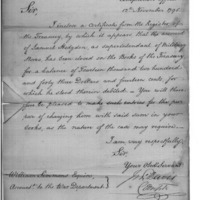 Comptroller's Office
12th November 1795
Sir,
I enclose a Certificate from the Register of
the Treasury, by which it appears that the account
of Samuel Hodgdon, as superintendant of Military
Stores has been closed on the Books of the Treasury
for a balance of Fourteen thousand two hundred
forty three Dollars and fourteen cents, for
which he stands therein debited. — You will there-
fore be pleased to make similar entries for the pur-
pose of charging him with said sum on your
books, as the nature of the case may require —
I am very respectfully,
Sir
Your Obedient
Comptr
William Simmons Esquire,
Accountt to the War Department